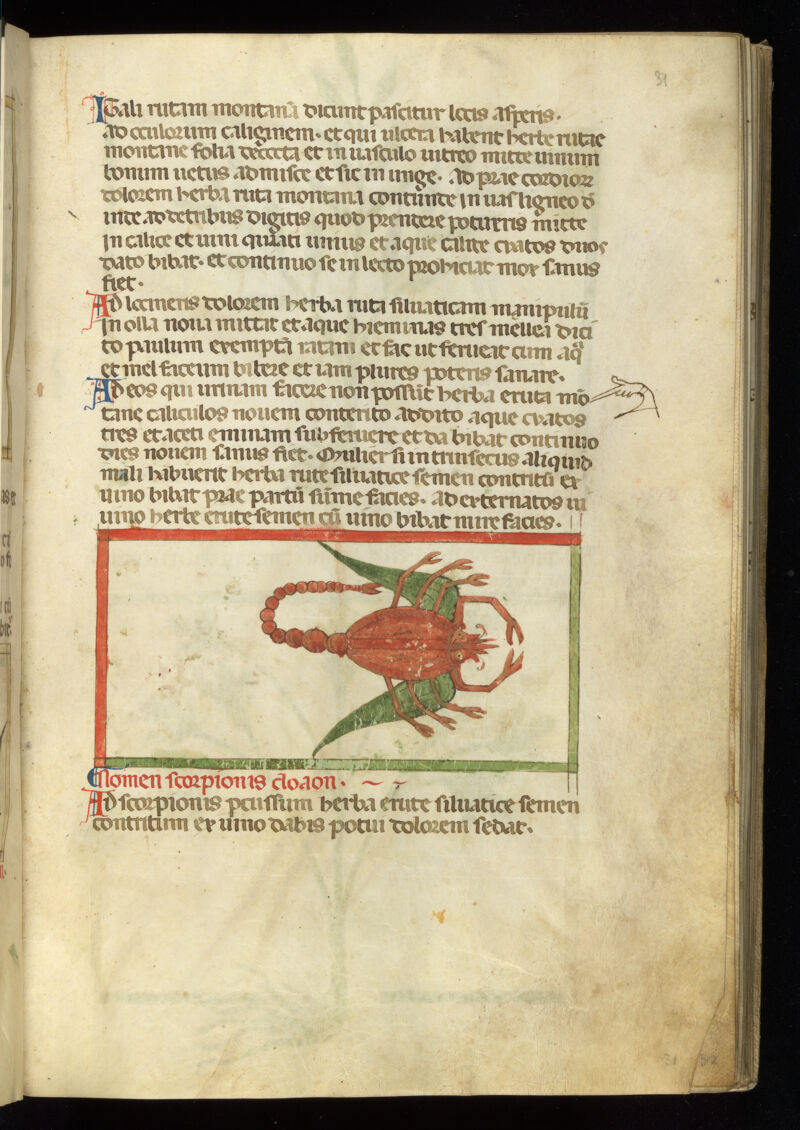 31
Itali rutam montanā dicunt pascitur locis asperis.
ad occulorum caliginem. et qui ulcera habent herbe rutae
montane folia decocta et in uasculo uitreo mitte uinum
bonum uetus admisce et sic in unge. Ad prae cordiorꝝ
dolorem herba ruta montana contunde in uas ligneo d
inde addetribus digitis quod prendere potueris mitte
in calice et uini quiati unius et aque calide ciatos duos
dato bibat. et continuo se in lecto prohiciat mox sanus
fiet.
Ad dolorem herba ruta siluaticam manipulū
in olla noua mittat et aque hieminas tres mellea dici
to paulum exempta et fac ut ferueat cum aq̄
et mel faceum bibere et iam plures poteris sanare.
Ad eos qui urinam facere non possūt herba eruta mō
tane caliculos nouem conterito addito aque ciatos
tres et aceti eminam subferuere et da bibat continuo
dies nouem sanus fiet. Mulier si intrinsecus aliquid
mali habuerit herba rute siluatice semen contritū ex
uino bibat prae partū sūme facies. ad externatos in
uino herbe erute semen cū uino bibat mire facies.
Nomen scorpionis cloaon.
Ad scorpionis pcussum herba erute siluatice semen
contritum ex uino dabis potui dolorem sedat.